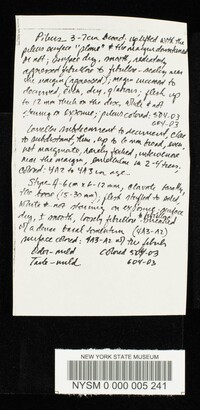 Pileus 3-7cm broad, uplifted with the
pileus surface "plane" & the margin downturned
or not; surface dry, smooth, radiately
appressed fibrillose to fibrillose-scaly near
the margin (appressed); margin incurved to
decurved, even, dry, glabrous; flesh up
to 12 mm thick on the disc, white & not
staining on exposure; pileus colored: 5D4-D3
6D4-D3
Lamellae subdecurrent to decurrent, close
to subdistant, thin, up to 6 mm broad, even,
not marginate, rarely forked,
near the margin, lamellulae in 2-4 tiers,
colored: 4A2 to 4A3 in age.
Stipe 4-6cm x 6-12mm, clavate towards
the base (15-30mm); flesh stuffed to solid,
white & not staining on exposure; surface
dry, ± smooth, loosely fibrillose
w/ a dense basal tomentum (4A3-A2)
surface colored: 4A3-A2 w/ the fibrils
Odor-mild colored 5D4-D3
Taste-mild 6D4-D3
NEW YORK STATE MUSEUM
NYSM 0 000 005 241